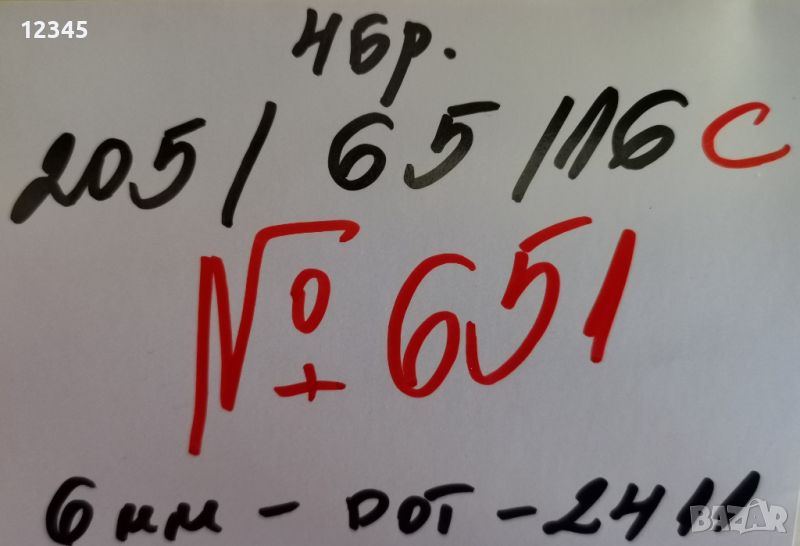 12345
4бр.
205/65/16C
№651
6мм - DOT - 2411
BAZAR